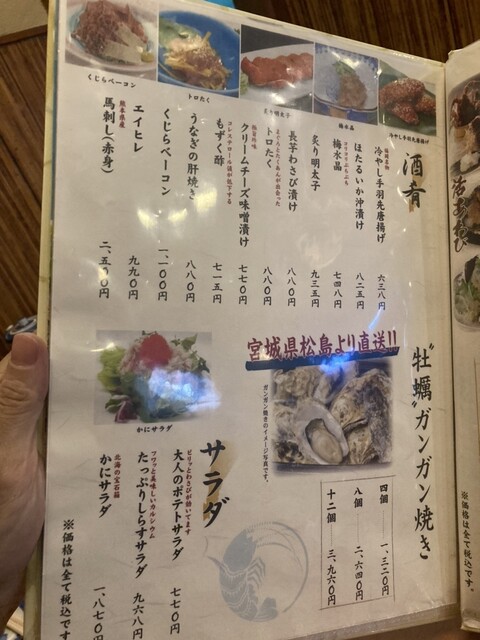 くじらベーコン
トロたく
炙り明太子
梅水晶
冷やし手羽先唐揚げ
酒肴
福岡名物
冷やし手羽先唐揚げ 六三八円
ほたるいか沖漬け 八二五円
コリコリぷちぷち
梅水晶 七四八円
炙り明太子 九三五円
長芋わさび漬け 八八〇円
まぐろとたくあんが出会った
トロたく 八八〇円
クリームチーズ味噌漬け 七七〇円
コレステロール値が低下する
もずく酢 七一五円
うなぎの肝焼き 八八〇円
くじらベーコン 一、一〇〇円
エイヒレ 九九〇円
熊本県産
馬刺し(赤身) 二、五三〇円
宮城県松島より直送!!
"牡蠣"ガンガン焼き
ガンガン焼きのイメージ写真です。
四個 一、三二〇円
八個 二、六四〇円
十二個 三、九六〇円
かにサラダ
サラダ
ピリッとわさびが効いてます
大人のポテトサラダ 七七〇円
フワッと美味しいカルシウム
たっぷりしらすサラダ 九六八円
北海の宝石箱
かにサラダ 一、八七〇円
※価格は全て税込です。
岩あわび
※価格は全て税込です